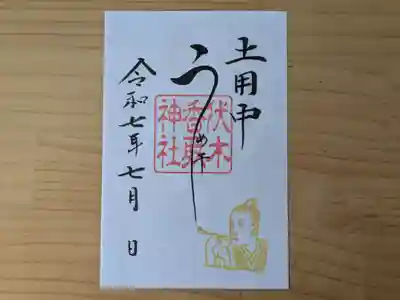 土用中
うめ干し
伏木
香取
神社
令和七年七月 日